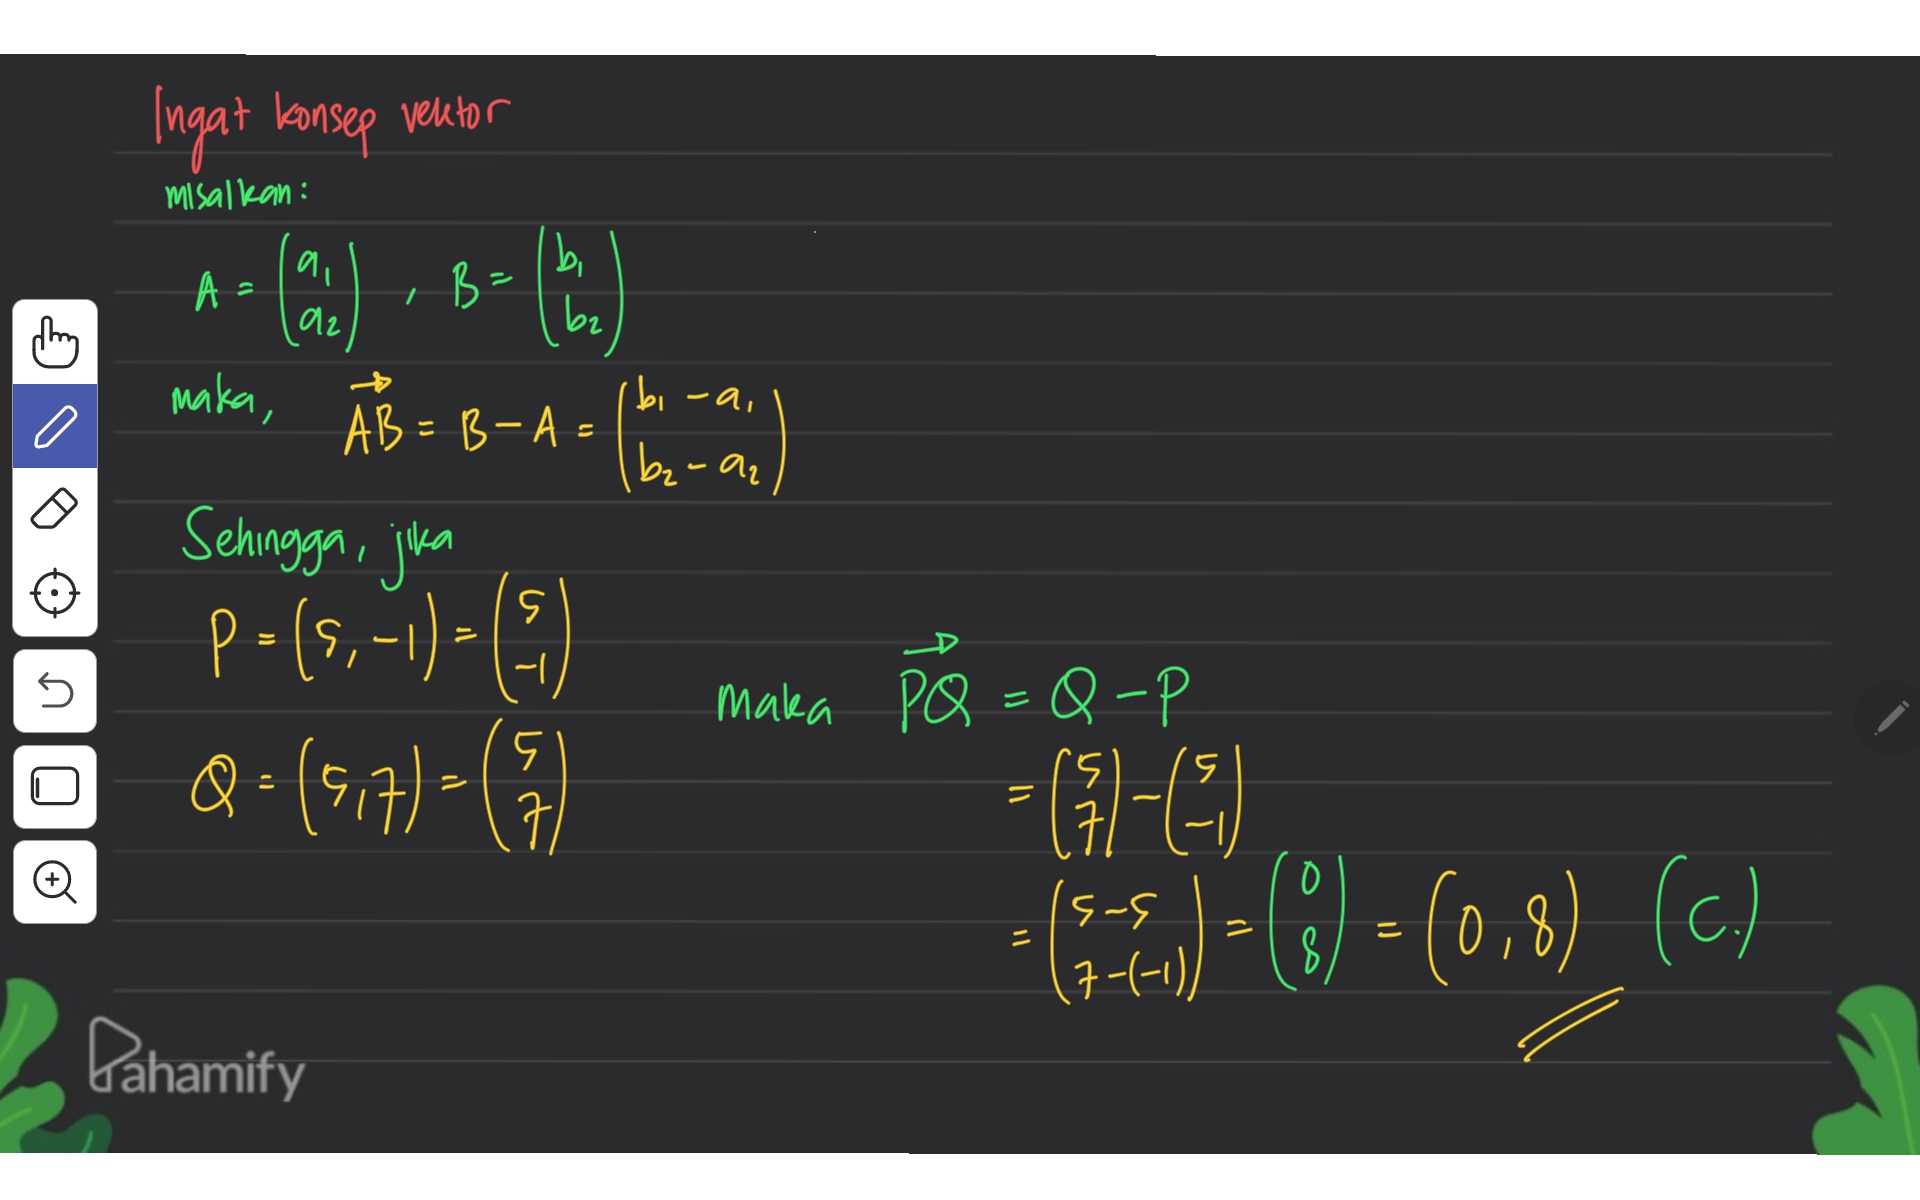 Ingat konsep vektor
misalkan:
A = (a₁ a₂) , B = (b₁ b₂)
maka, AB→ = B - A = (b₁ - a₁ b₂ - a₂)
Sehingga, jika
P = (5, -1) = (5 -1)
Q = (5,7) = (5 7)
maka PQ→ = Q - P
= (5 7) - (5 -1)
= (5-5 7-(-1)) = (0 8) = (0,8) (C.)
Pahamify